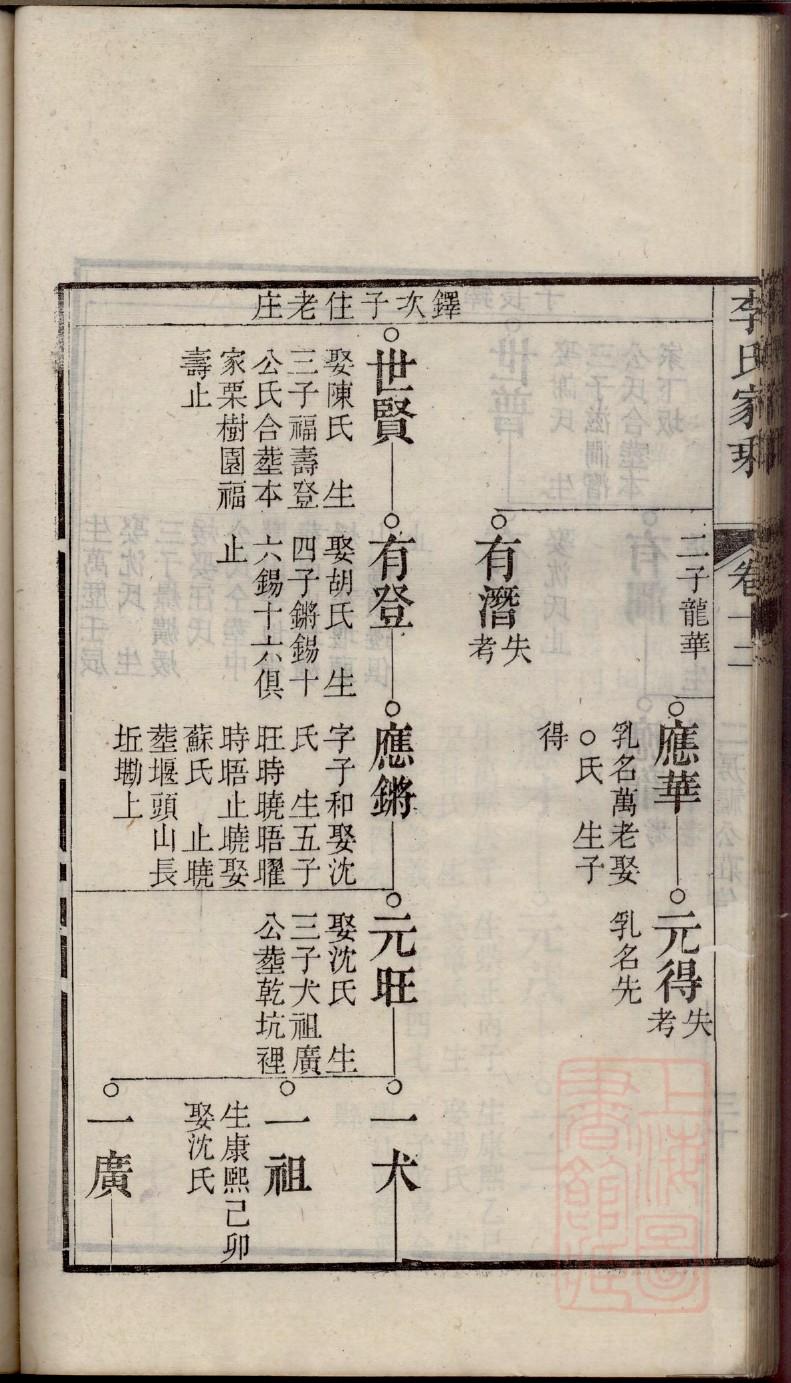 李氏家乘
卷十二
二子龍華
應華
乳名萬老娶
○氏 生子
得
元得
失考
乳名先
有濳
失考
鐸次子住老庄
世賢
娶陳氏 生
三子福壽登
公氏合塟本
家栗樹園福
壽止
有登
娶胡氏 生
四子鏘錫十
六錫十六俱
止
應鏘
字子和娶沈
氏 生五子
旺時曉晤曜
時晤止曉娶
蘇氏 止曉
塟堰頭山長
坵墈上
元旺
娶沈氏 生
三子犬祖廣
公塟乾坑裡
一犬
一祖
生康熙己卯
娶沈氏
一廣
上海圖
書館藏